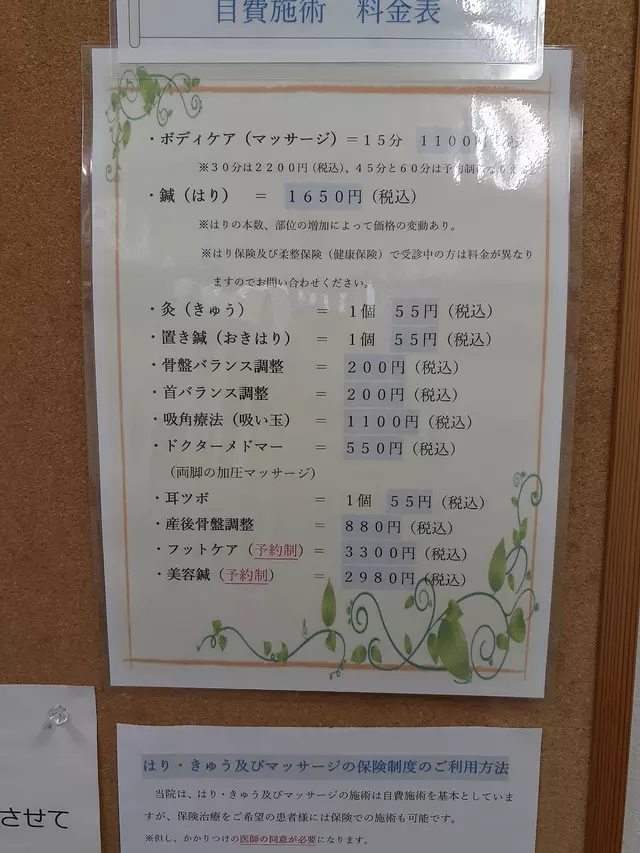 自費施術 料金表
・ボディケア（マッサージ）＝１５分 １１００円
※３０分は２２００円（税込）、４５分と６０分は予約制に
・鍼（はり） ＝ １６５０円（税込）
※はりの本数、部位の増加によって価格の変動あり。
※はり保険及び柔整保険（健康保険）で受診中の方は料金が異なり
ますのでお問い合わせください。
・灸（きゅう） ＝ １個 ５５円（税込）
・置き鍼（おきはり） ＝ １個 ５５円（税込）
・骨盤バランス調整 ＝ ２００円（税込）
・首バランス調整 ＝ ２００円（税込）
・吸角療法（吸い玉） ＝ １１００円（税込）
・ドクターメドマー ＝ ５５０円（税込）
（両脚の加圧マッサージ）
・耳ツボ ＝ １個 ５５円（税込）
・産後骨盤調整 ＝ ８８０円（税込）
・フットケア（予約制）＝ ３３００円（税込）
・美容鍼（予約制） ＝ ２９８０円（税込）
はり・きゅう及びマッサージの保険制度のご利用方法
当院は、はり・きゅう及びマッサージの施術は自費施術を基本としていま
すが、保険治療をご希望の患者様には保険での施術も可能です。
※但し、かかりつけの医師の同意が必要になります。
させて